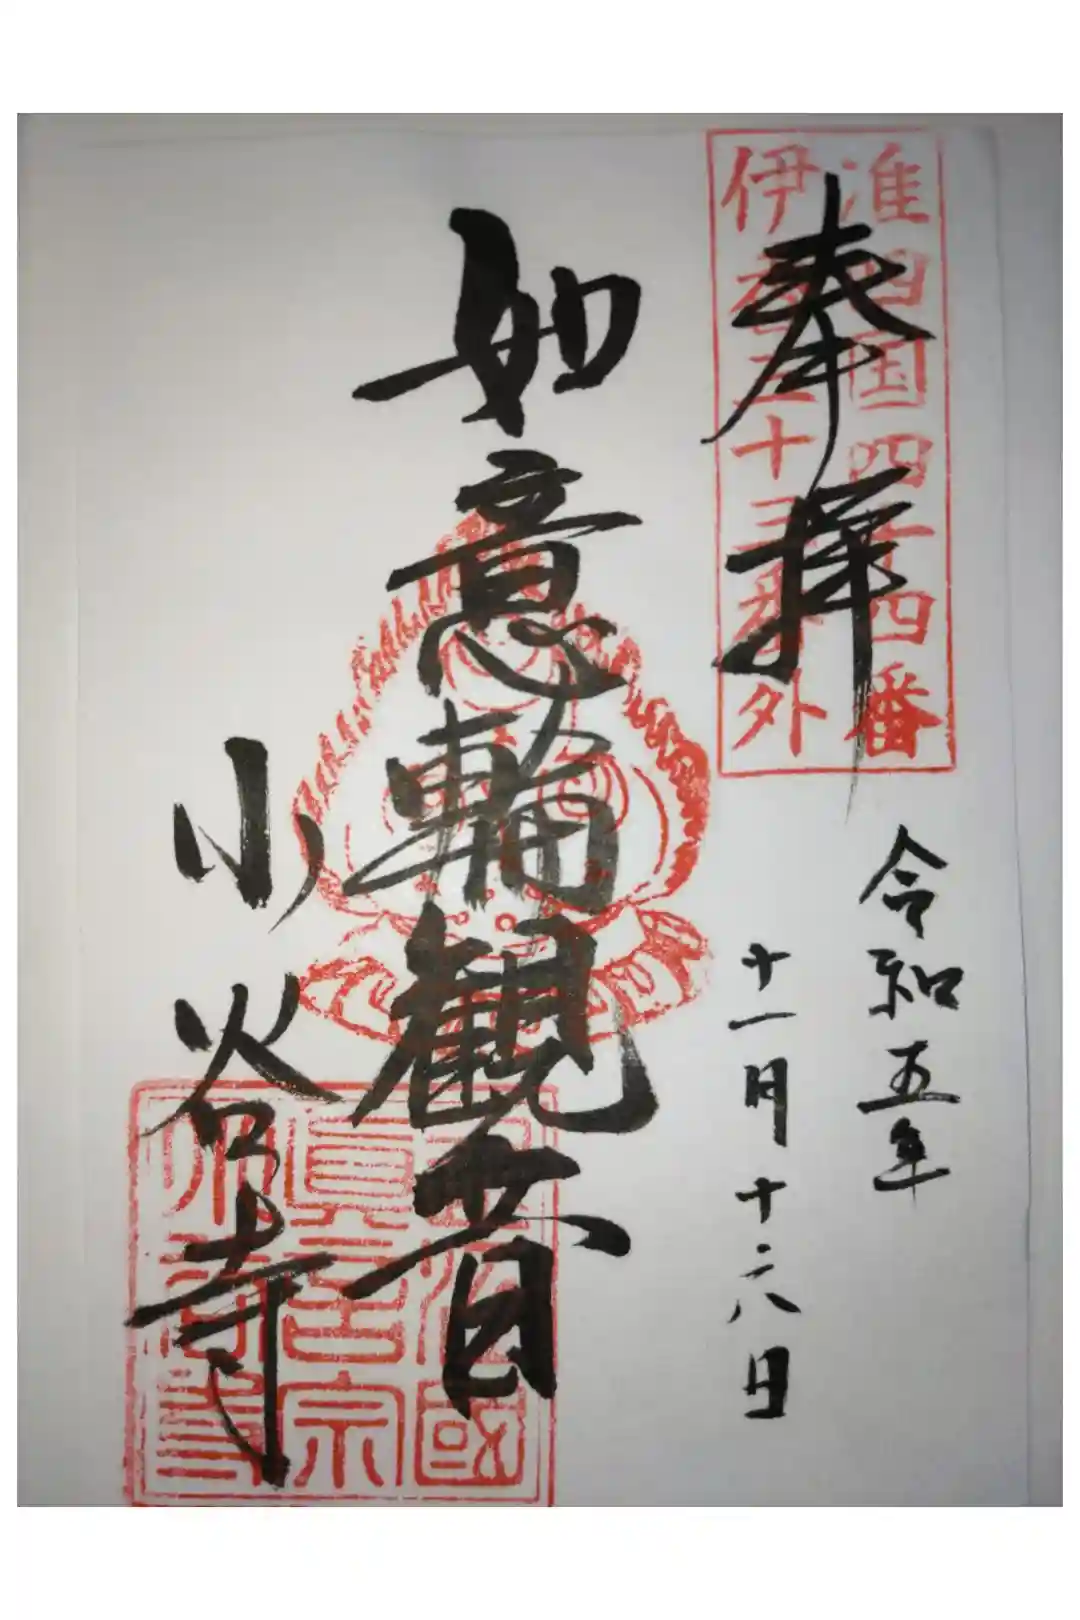 准四国四十四番
伊香三十三番外
奉拝
令和五年
十一月十六日
如意輪観音
小谷寺
近江國
真言宗
小谷寺